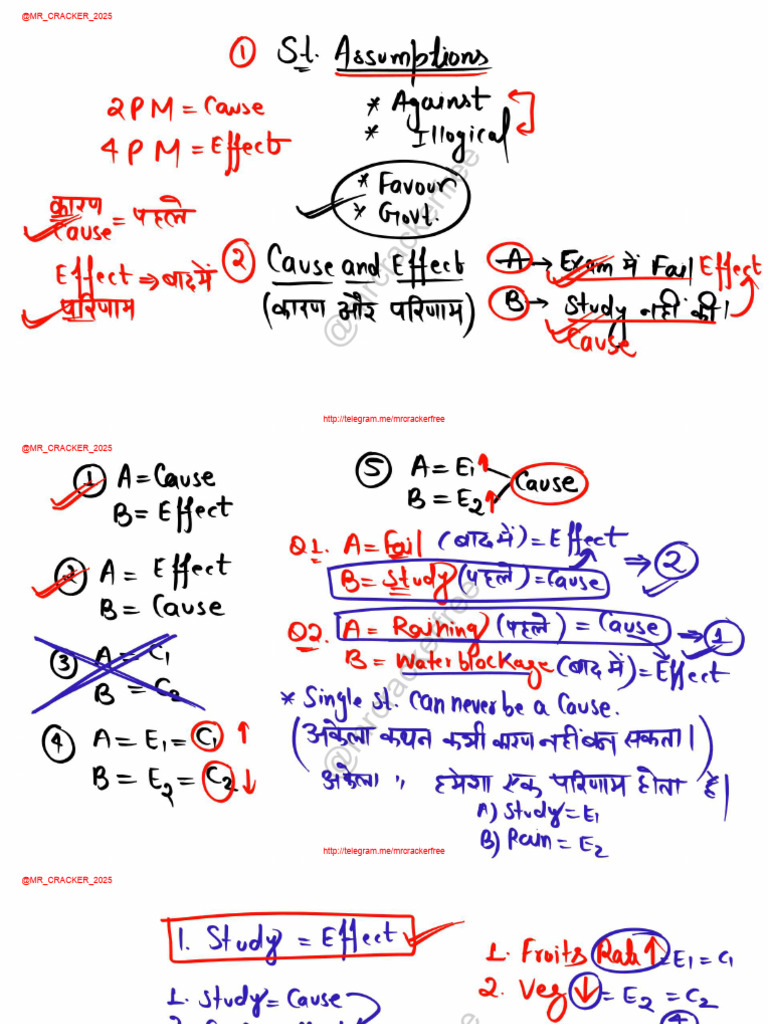 @MR_CRACKER_2025
① St. Assumptions
2 PM = Cause
4 PM = Effect
* Against
* Illogical
* Favour
* Govt.
कारण
Cause = पहले
Effect ⇒ बाद में
परिणाम
② Cause and Effect
(कारण और परिणाम)
A → Exam में Fail Effect
B → Study नहीं की।
Cause
@mrcrackerfree
http://telegram.me/mrcrackerfree
@MR_CRACKER_2025
① A = Cause
B = Effect
② A = Effect
B = Cause
③ A = C1
B = C2
④ A = E1 = C1 ↑
B = E2 = C2 ↓
⑤ A = E1 ↑
B = E2 ↑
Cause
Q1. A = Fail (बाद में) = Effect
B = Study (पहले) = Cause ⇒ ②
Q2. A = Raining (पहले) = Cause → ①
B = Water blockage (बाद में) = Effect
* Single st. can never be a Cause.
(अकेला कथन कभी कारण नहीं बन सकता।)
अकेला ,, हमेशा एक परिणाम होता है|
A) Study = E1
B) Rain = E2
@mrcrackerfree
http://telegram.me/mrcrackerfree
@MR_CRACKER_2025
1. Study = Effect
1. Study = Cause
1. Fruits Rate ↑ = E1 = C1
2. Veg ↓ = E2 = C2